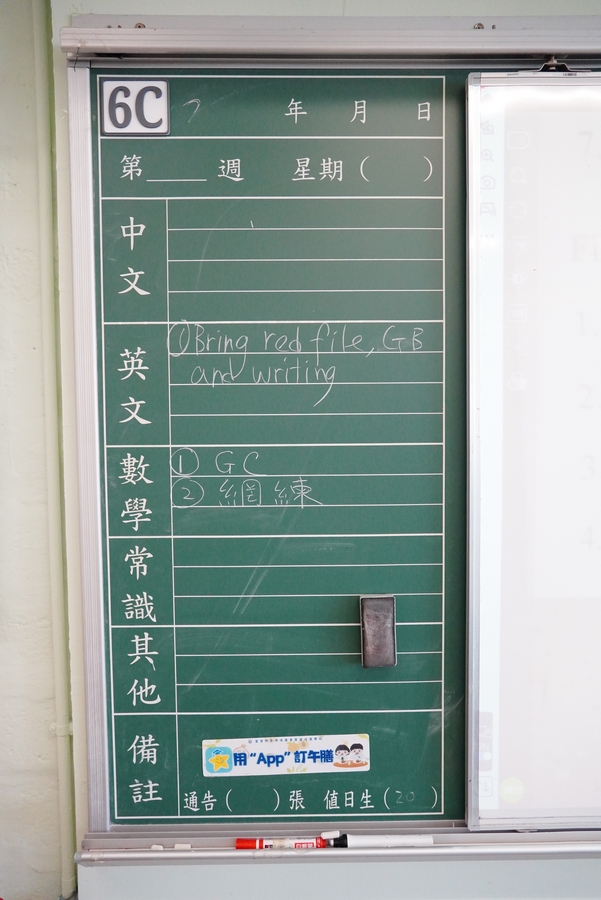 6C 年 月 日
第 週 星期( )
中文
英文
①Bring red file, GB
and writing
數學
① GC
② 網練
常識
其他
備註
用“App”訂午膳
通告( )張 值日生(20)